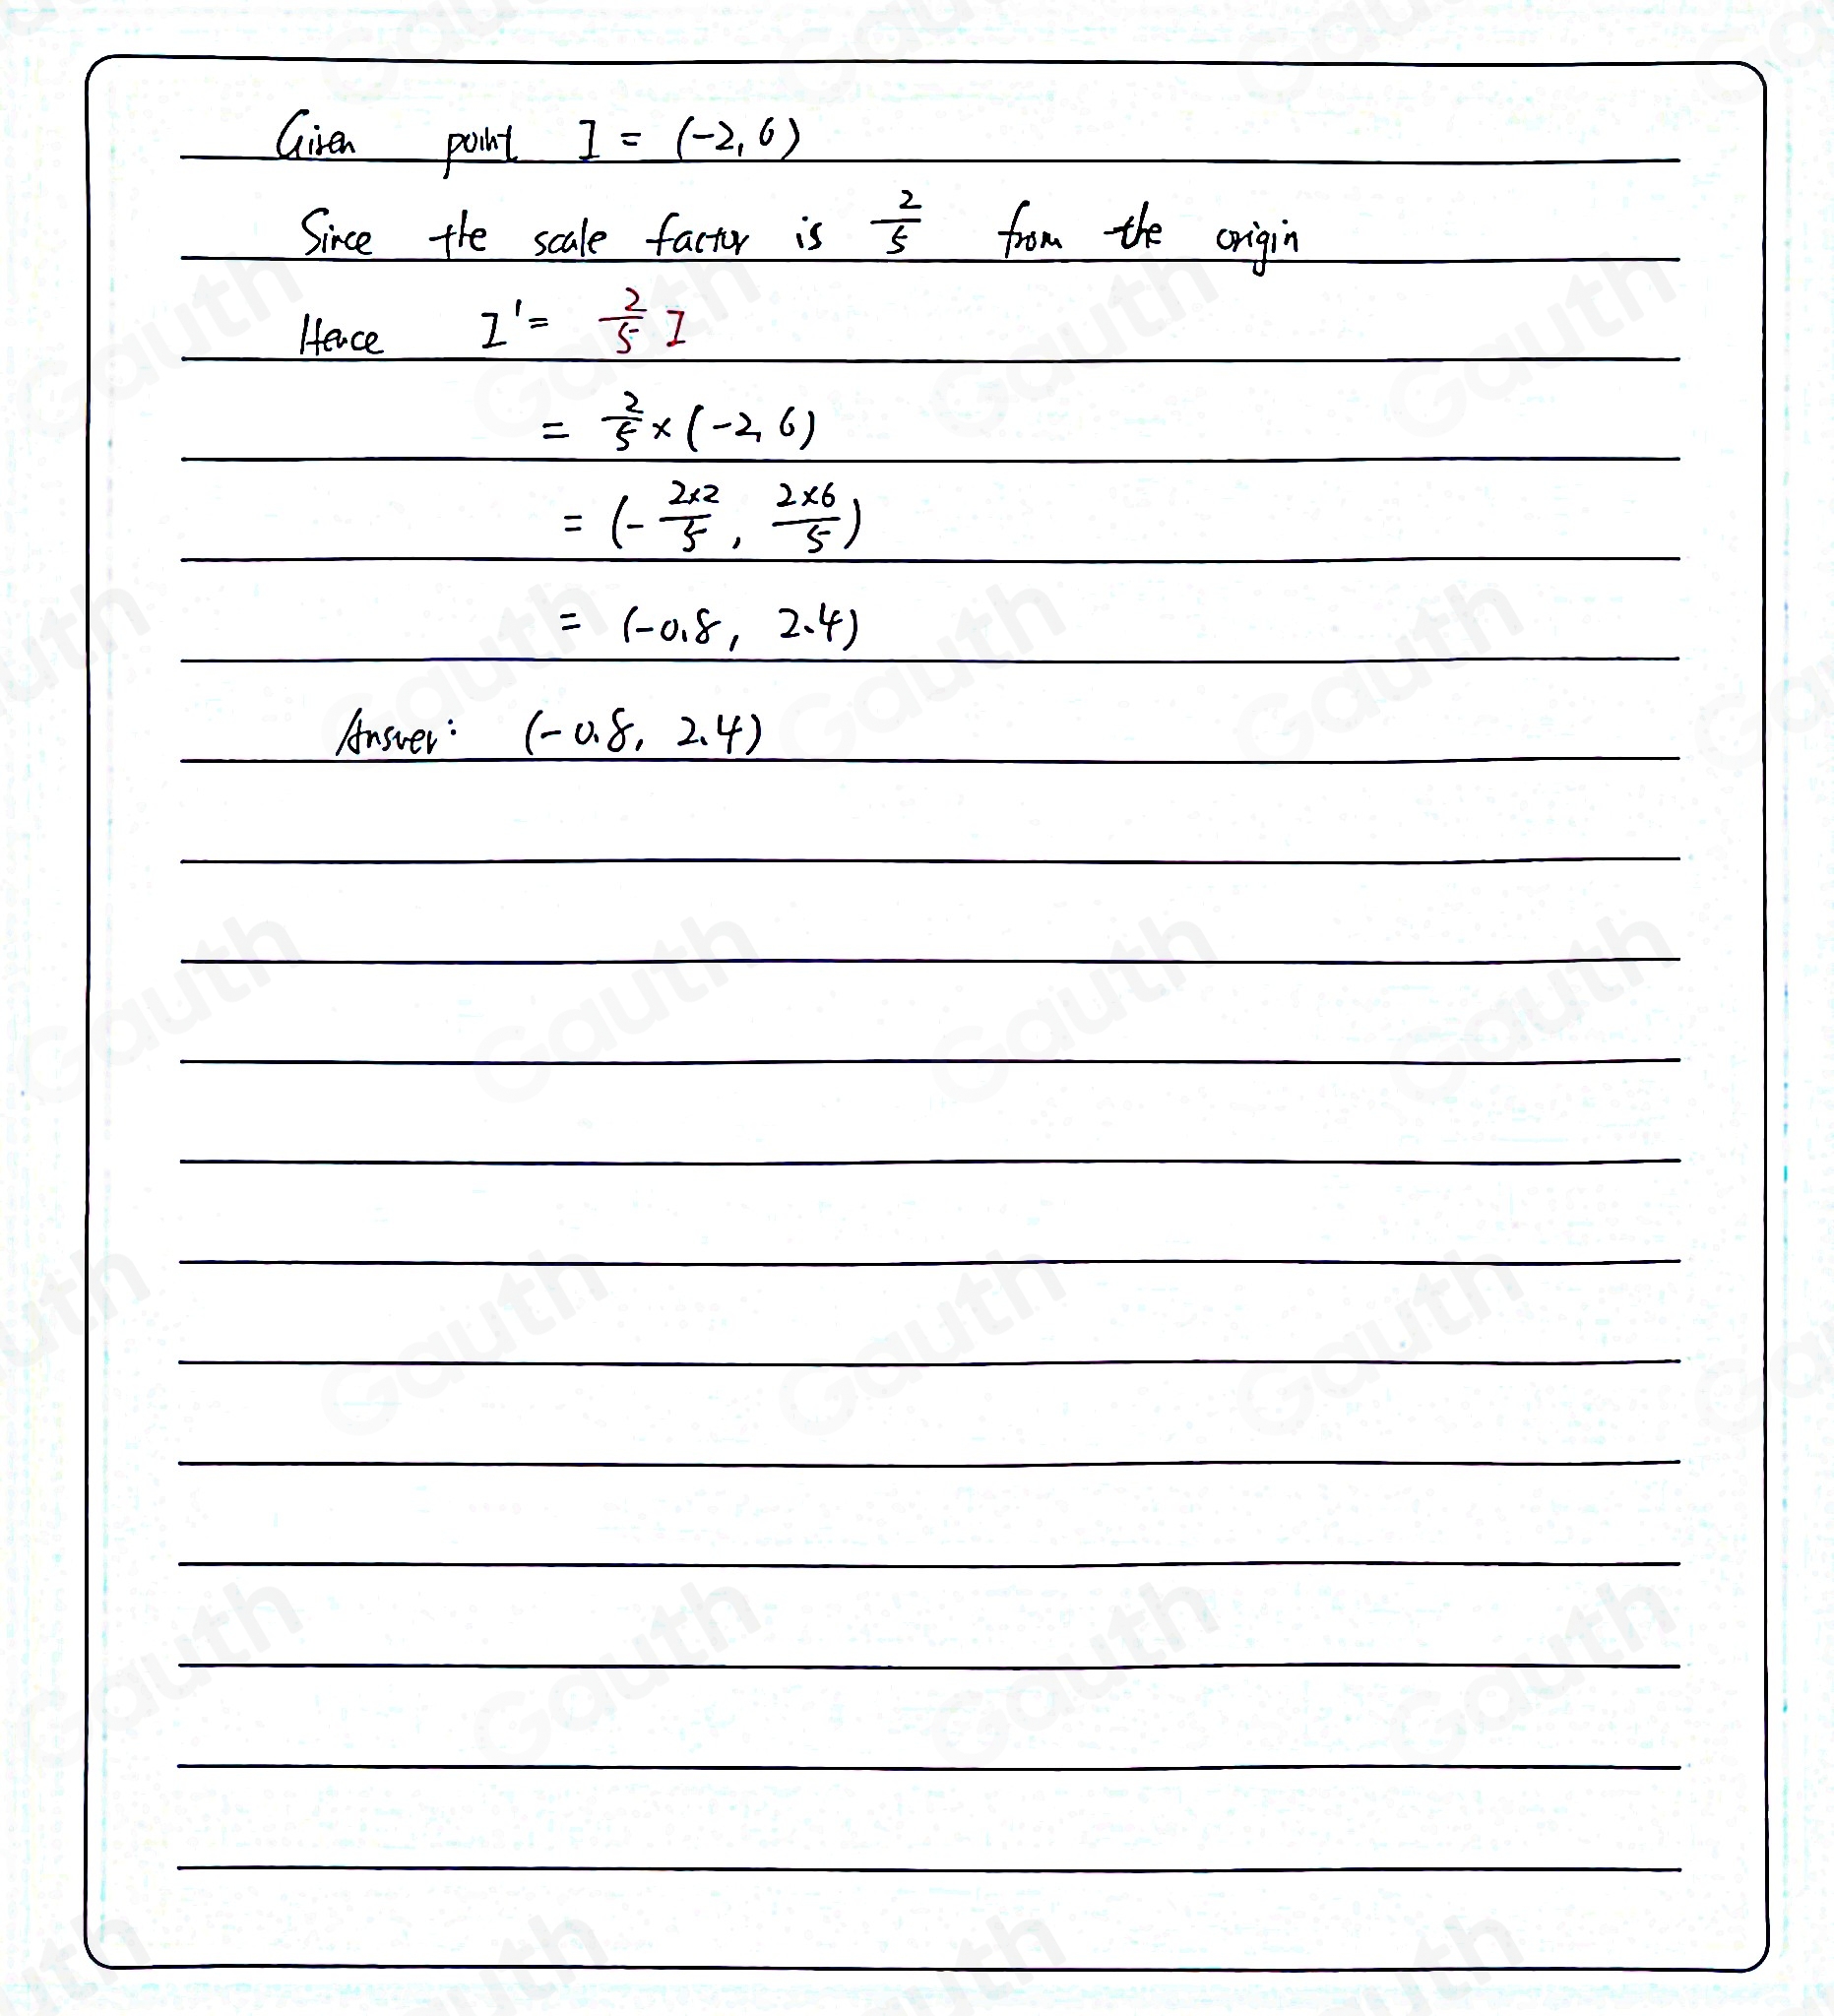 Given point I = (-2, 6)
Since the scale factor is 2/5 from the origin
Hence I' = 2/5 I
= 2/5 × (-2, 6)
= (- 2×2/5, 2×6/5)
= (-0.8, 2.4)
Answer: (-0.8, 2.4)
Gauth